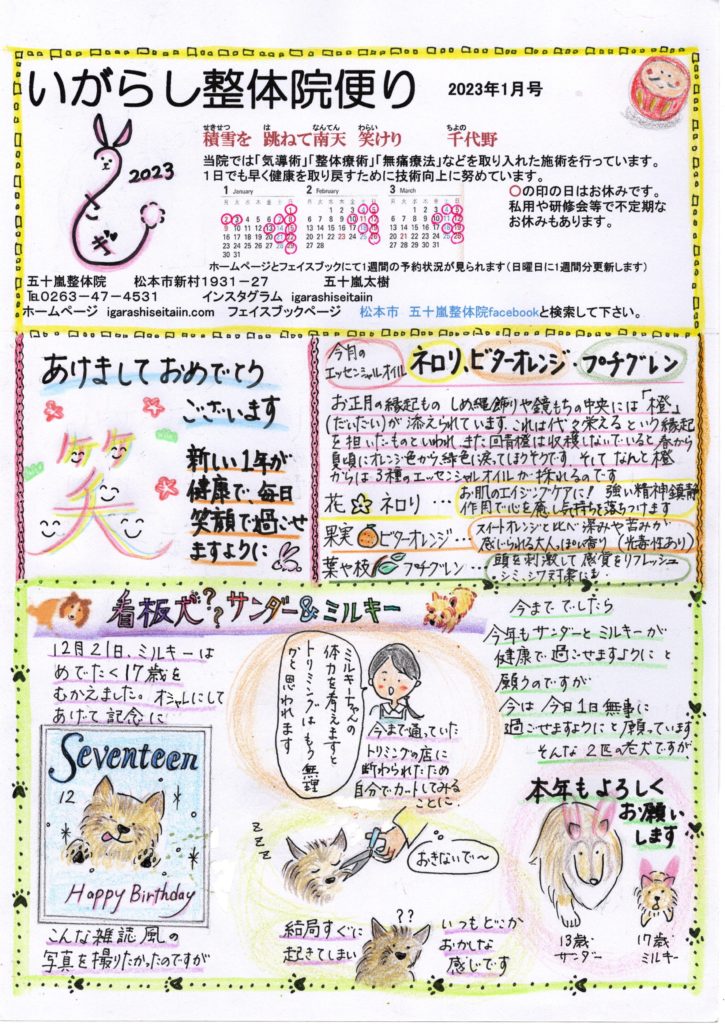 いがらし整体院便り 2023年1月号
せきせつ は なんてん わらい ちよの
積雪を 跳ねて南天 笑けり 千代野
当院では「気導術」「整体療術」「無痛療法」などを取り入れた施術を行っています。
1日でも早く健康を取り戻すために技術向上に努めています。
2023
1 January
2 February
3 March
○の印の日はお休みです。
私用や研修会等で不定期な
お休みもあります。
ホームページとフェイスブックにて1週間の予約状況が見られます(日曜日に1週間分更新します)
五十嵐整体院 松本市新村1931-27 五十嵐太樹
℡0263-47-4531 インスタグラム igarashiseitaiin
ホームページ igarashiseitaiin.com フェイスブックページ 松本市 五十嵐整体院facebookと検索して下さい。
あけまして おめでとう
ございます
笑
新しい1年が
健康で、毎日
笑顔で過ごせ
ますように
今月の
エッセンシャルオイル
ネロリ、ビターオレンジ・プチグレン
お正月の縁起もの しめ縄飾りや鏡もちの中央には「橙」
(だいだい)が 添えられています。これは代々栄える という縁起
を 担いだものといわれ、また 回青橙は収穫しないでいると 春から
夏頃にオレンジ色から緑色に戻ってしまうそうです。そして なんと 橙
からは 3種のエッセンシャルオイルが 採れるのです
花 ネロリ … お肌のエイジングケアに! 強い精神鎮静
作用で心を癒し気持ちを落ちつけます
果実 ビターオレンジ… スイートオレンジと比べ 深みや苦みが
感じられる大人っぽい香り (光毒性あり)
葉や枝 プチグレン … 頭を刺激して感覚をリフレッシュ
・シミ、シワ対策にも・
看板犬?? サンダー&ミルキー
12月21日、ミルキーは
めでたく17歳を
むかえました。オシャレにして
あげて記念に
Seventeen
12
Happy Birthday
こんな雑誌風の
写真を撮りたかったのですが
ミルキーちゃんの
体力を考えますと
トリミングはもう無理
かと思われます
今まで通っていた
トリミングの店に
断わられたため
自分でカットしてみる
ことに
zzz
おきないで〜
結局すぐに
起きてしまい
??
いつもどこか
おかしな
感じです
今まででしたら
今年もサンダーとミルキーが
健康で過ごせますように と
願うのですが
今は 今日1日無事に
過ごせますように と願っています
そんな2匹の老犬ですが、
本年もよろしく
お願い
します
13歳
サンダー
17歳
ミルキー